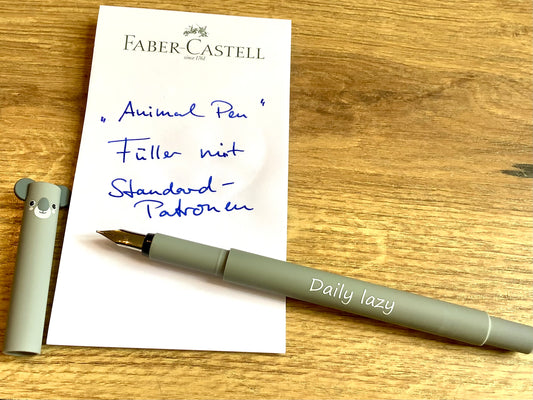 FABER-CASTELL
since 1761
„Animal Pen“
Füller mit
Standard-
Patronen
Daily lazy